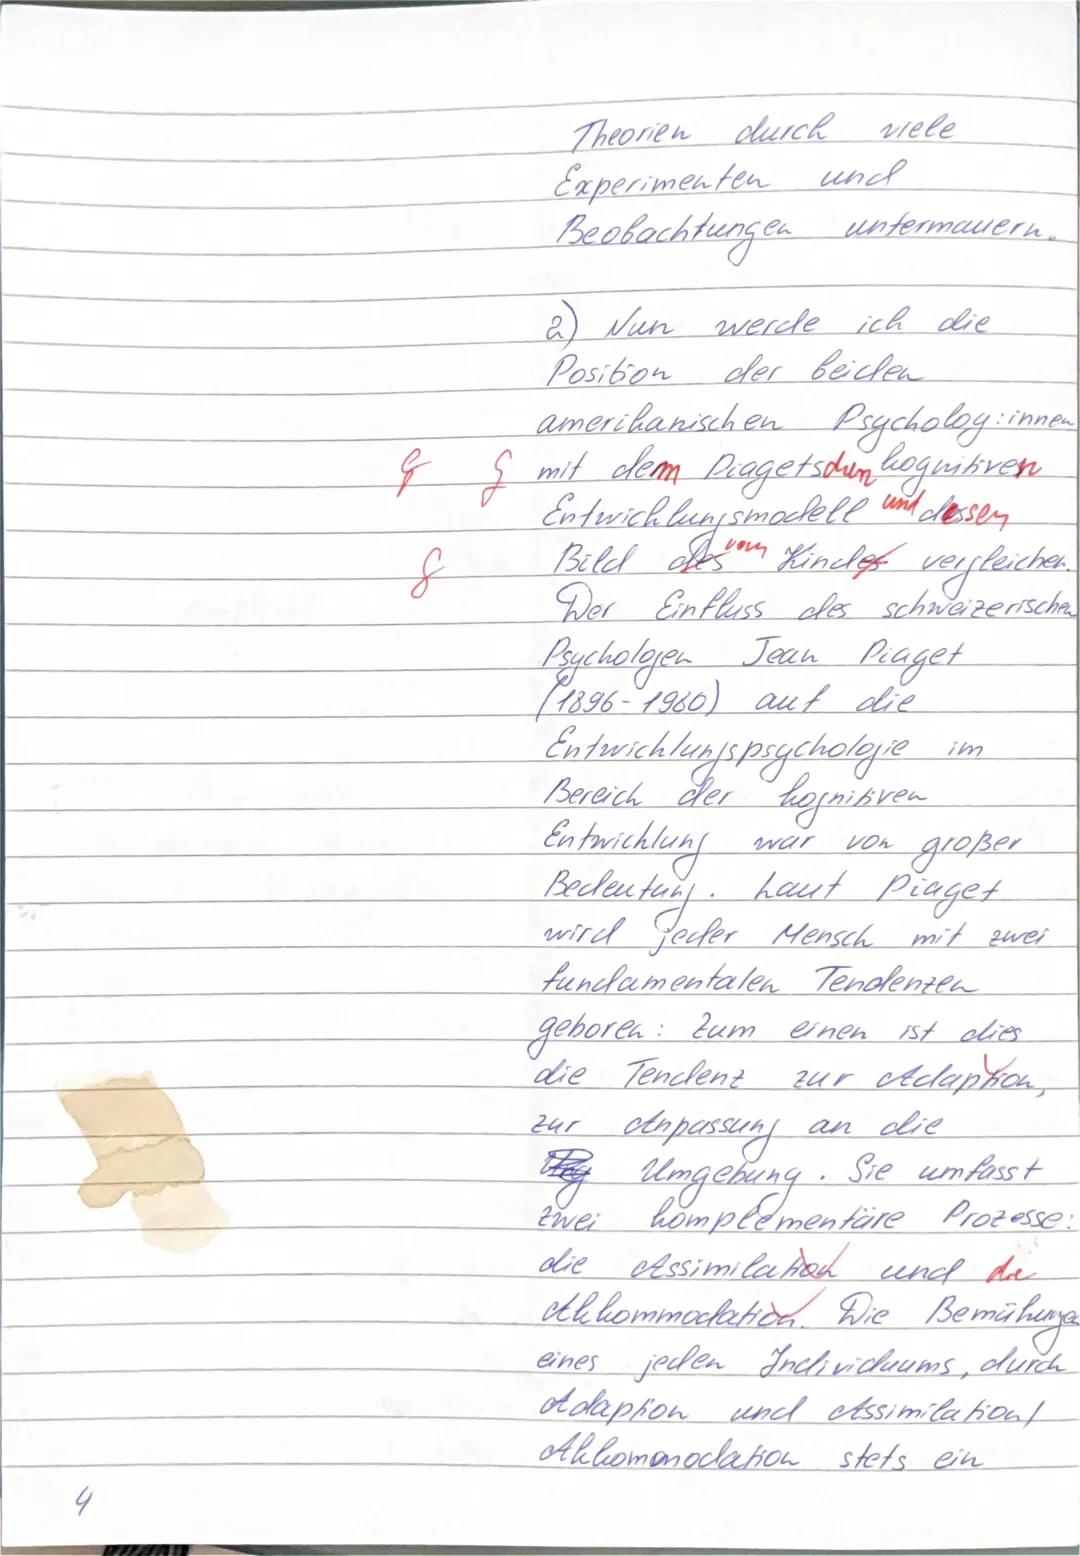 Theorien durch viele
Experimenten und
Beobachtungen untermauern.
2) Nun werde ich die
Position der beiden
amerikanischen Psycholog:innen
G G mit dem Piagetschen kognitiven
Entwicklungsmodell und dessen
G Bild des vom Kindes vergleichen.
Der Einfluss des schweizerischen
Psychologen Jean Piaget
(1896-1980) auf die
Entwicklungspsychologie im
Bereich der kognitiven
Entwicklung war von großer
Bedeutung. Laut Piaget
wird jeder Mensch mit zwei
fundamentalen Tendenzen
geboren: Zum einen ist dies
die Tendenz zur Adaption,
zur Anpassung an die
Umgebung. Sie umfasst
zwei komplementäre Prozesse:
die Assimilation und die
Akkommodation. Die Bemühungen
eines jeden Individuums, durch
Adaption und Assimilation/
Akkomonodation stets ein
4